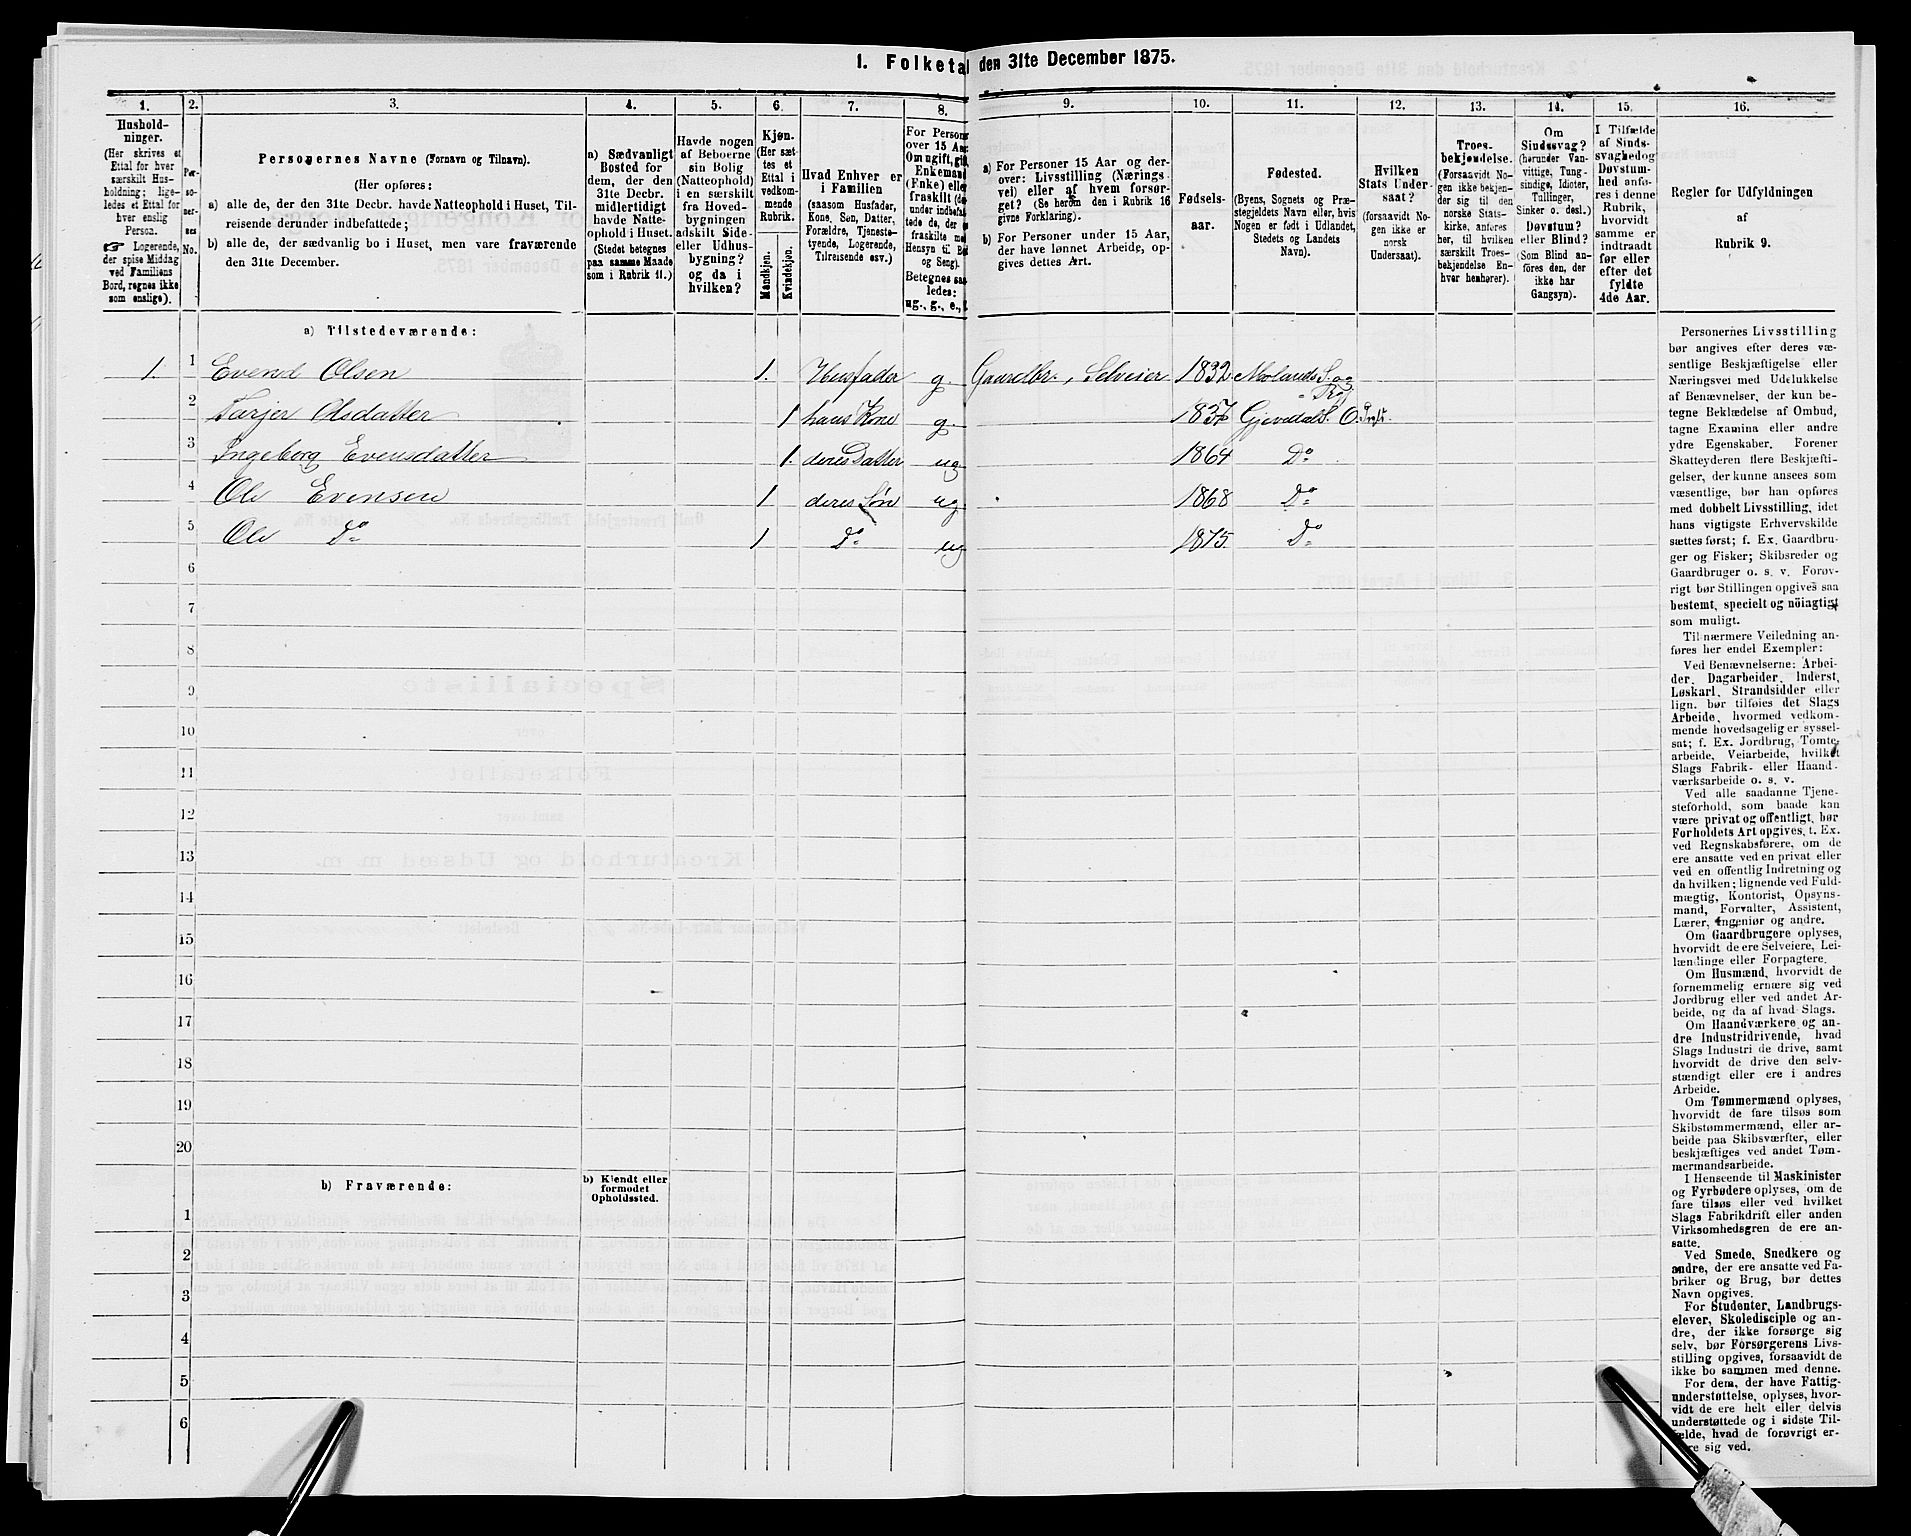 1. Folketal den 31te December 1875.
1. 2. 3. 4. 5. 6. 7. 8. 9. 10. 11. 12. 13. 14. 15. 16.
Hushold-
ninger.
(Her skrives et
Ettal for hver
særskilt Hus-
holdning; lige-
ledes et Ettal for
hver enslig
Person.
☞ Logerende,
der spise Middag
ved Familiens
Bord, regnes ikke
som enslige).
Per-
so-
ner-
nes
No.
Personernes Navne (Fornavn og Tilnavn).
(Her opføres:
a) alle de, der den 31te Decbr. havde Natteophold i Huset, Til-
reisende derunder indbefattede;
b) alle de, der sædvanlig bo i Huset, men vare fraværende
den 31te December.
a) Sædvanligt
Bosted for
dem, der den
31te Decbr.
midlertidigt
havde Natte-
ophold i Huset.
(Stedet betegnes
paa samme Maade
som i Rubrik 11.)
Havde nogen
af Beboerne
sin Bolig
(Natteophold)
i en særskilt
fra Hoved-
bygningen
adskilt Side-
eller Udhus-
bygning?
og da i
hvilken?
Kjøn.
(Her sæt-
tes et
Ettal i
vedkom-
mende
Rubrik.
Mandkjøn.
Kvindekjøn.
Hvad Enhver er
i Familien
(saasom Husfader,
Kone, Søn, Datter,
Forældre, Tjeneste-
tyende, Logerende,
Tilreisende osv.)
For Person
over 15 Aar
Om ugift, gift
Enkemand
(Enke) eller
fraskilt (de
under indbefat
tede de, der e
fraskilte med
Hensyn til Bo
og Seng).
Betegnes saa
ledes:
ug., g., e.,
a) For Personer 15 Aar og der-
over: Livsstilling (Nærings
vei) eller af hvem forsør-
get? (Se herom den i Rubrik 16
givne Forklaring).
b) For Personer under 15 Aar,
der have lønnet Arbeide, op-
gives dettes Art.
Fødsels-
aar.
Fødested.
(Byens, Sognets og Præ-
stegjeldets Navn eller, hvis
Nogen er født i Udlandet,
Stedets og Landets
Navn).
Hvilken
Stats Under-
saat?
(forsaavidt No-
gen ikke er
norsk
Undersaat).
Troes-
bekjendelse.
(Forsaavidt No-
gen ikke bekjen-
der sig til den
norske Stats-
kirke, anføres
her, til hvilken
særskilt Troes-
bekjendelse En-
hver henhører).
Om
Sindssvag?
(herunder Van-
vittige, Tung-
sindige, Idioter,
Tullinger,
Sinker o. desl.)
Døvstum?
eller Blind?
(Som Blind an-
føres den, der
ikke har
Gangsyn).
I Tilfælde
af Sinds-
svaghed og
Døvstum-
hed anfø-
res i denne
Rubrik,
hvorvidt
samme er
indtraadt
før eller
efter det
fyldte
4de Aar.
Regler for Udfyldningen
af
Rubrik 9.
a) Tilstedeværende:
1. 1 Evend Olsen 1. Husfader g. Gaardbr., Selveier 1832 Molands S. og
Præj
2 Tarjer Olsdatter 1 hans Kone g. 1837 Gjevdals S. O. Præst.
3 Ingeborg Evensdatter 1. deres Datter ug. 1864 Do
4 Ole Evensen 1 deres Søn ug 1868 Do
5 Ole Do 1 Do ug 1875. Do
6
7
8
9
10
11
12
13
14
15
16
17
18
19
20
b) Fraværende:
b) Kjendt eller
formodet
Opholdssted.
1
2
3
4
5
6
Personernes Livsstilling
bør angives efter deres væ-
sentlige Beskjæftigelse eller
Næringsvei med Udelukkelse
af Benævnelser, der kun be-
tegne Beklædelse af Ombud,
tagne Examina eller andre
ydre Egenskaber. Forener
Skatteyderen flere Beskjæfti-
gelser, der kunne ansees som
væsentlige, bør han opføres
med dobbelt Livsstilling, idet
hans vigtigste Erhvervskilde
sættes først; f. Ex. Gaardbru-
ger og Fisker; Skibsreder og
Gaardbruger o. s. v. Forøv-
rigt bør Stillingen opgives saa
bestemt, specielt og nöiagtigt
som muligt.
Til nærmere Veiledning an-
føres her endel Exempler:
Ved Benævnelserne: Arbei-
der, Dagarbeider, Inderst,
Løskarl, Strandsidder eller
lign. bør tilføies det Slags
Arbeide, hvormed vedkom-
mende hovedsagelig er syssel-
sat; f. Ex. Jordbrug, Tomte-
arbeide, Veiarbeide, hvilket
Slags Fabrik- eller Haand-
værksarbeide o. s. v.
Ved alle saadanne Tjene-
steforhold, som baade kan
være privat og offentligt, bør
Forholdets Art opgives, t. Ex.
ved Regnskabsførere, om de
ere ansatte ved en privat eller
ved en offentlig Indretning og
da hvilken; lignende ved Fuld-
mægtig, Kontorist, Opsyns-
mand, Forvalter, Assistent,
Lærer, Ingeniør og andre.
Om Gaardbrugere oplyses,
hvorvidt de ere Selveiere, Lei-
lændinge eller Forpagtere.
Om Husmænd, hvorvidt de
fornemmelig ernære sig ved
Jordbrug eller ved andet Ar-
beide, og da af hvad Slags.
Om Haandværkere og an-
dre Industridrivende, hvad
Slags Industri de drive, samt
hvorvidt de drive den selv-
stændigt eller ere i andres
Arbeide.
Om Tømmermænd oplyses,
hvorvidt de fare tilsøs som
Skibstømmermænd, eller ar-
beide paa Skibsværfter, eller
beskjæftiges ved andet Tøm-
mermandsarbeide.
I Henseende til Maskinister
og Fyrbødere oplyses, om de
fare tilsøs eller ved hvilket
Slags Fabrikdrift eller anden
Virksomhedsgren de ere an-
satte.
Ved Smede, Snedkere og
andre, der ere ansatte ved Fa-
briker og Brug, bør dettes
Navn opgives.
For Studenter, Landbrugs-
elever, Skoledisciple og an-
dre, der ikke forsørge sig
selv, bør Forsørgerens Livs-
stilling opgives, forsaavidt de
ikke bo sammen med denne.
For dem, der have Fattig-
understøttelse, oplyses, hvor-
vidt de ere helt eller delvis
understøttede og i sidste Til-
fælde, hvad de forøvrigt er-
nære sig ved.